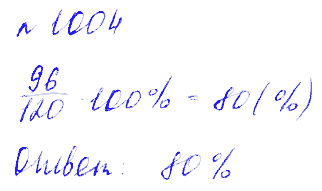 № 1004
96/120 · 100% = 80(%)
Ответ: 80%